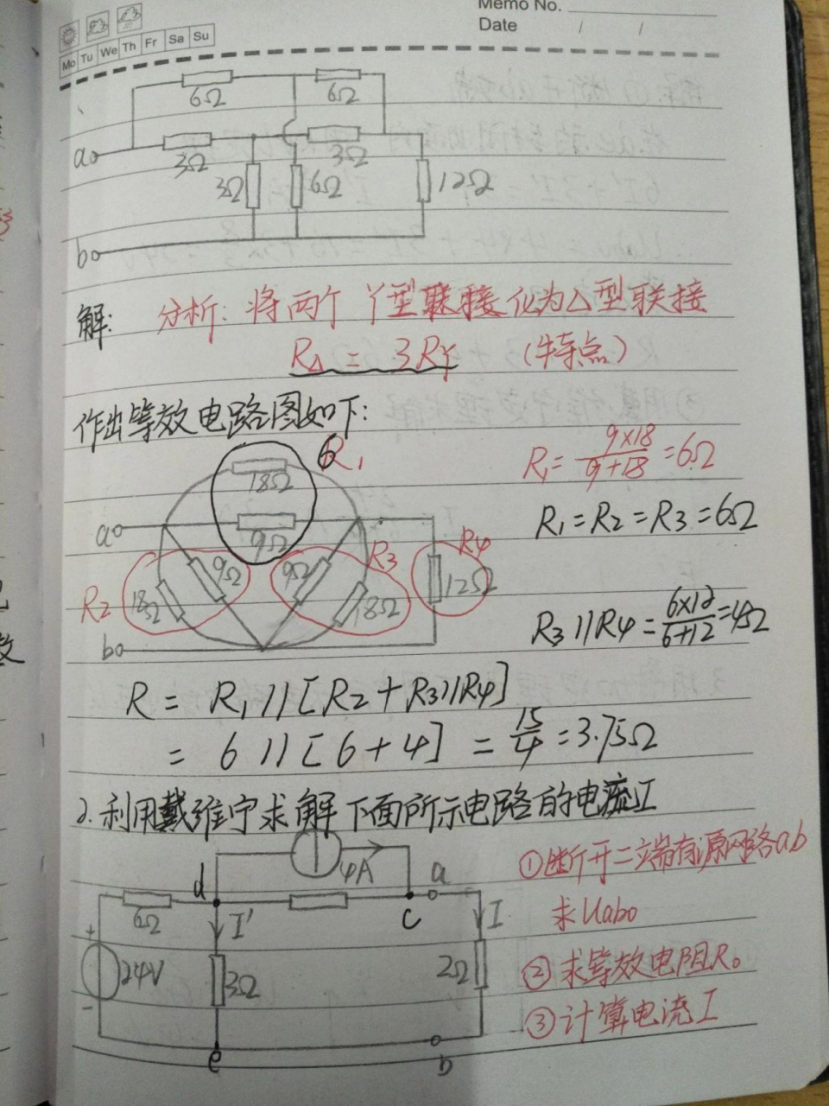 Memo No.
Date / /
Mo Tu We Th Fr Sa Su
6Ω 6Ω
ao 3Ω 3Ω
3Ω 6Ω 12Ω
bo
解: 分析: 将两个 Y型联接化为△型联接
R△ = 3RY (特点)
作出等效电路图如下:
18Ω 6 R₁
R₁ = 9×18/9+18 = 6Ω
ao 9Ω
R₁=R₂=R₃=6Ω
R₂ 18Ω 9Ω 9Ω R₃ 18Ω R₄ 12Ω
bo
R₃//R₄ = 6×12/6+12 = 4Ω
R = R₁//[R₂+R₃//R₄]
= 6//[6+4] = 15/4 = 3.75Ω
2.利用戴维宁求解下面所示电路的电流I
4A
①断开二端有源网络a,b
求Uabo
d a
6Ω I' c I
+ 24V - 3Ω 2Ω
②求等效电阻R₀
③计算电流I
e b